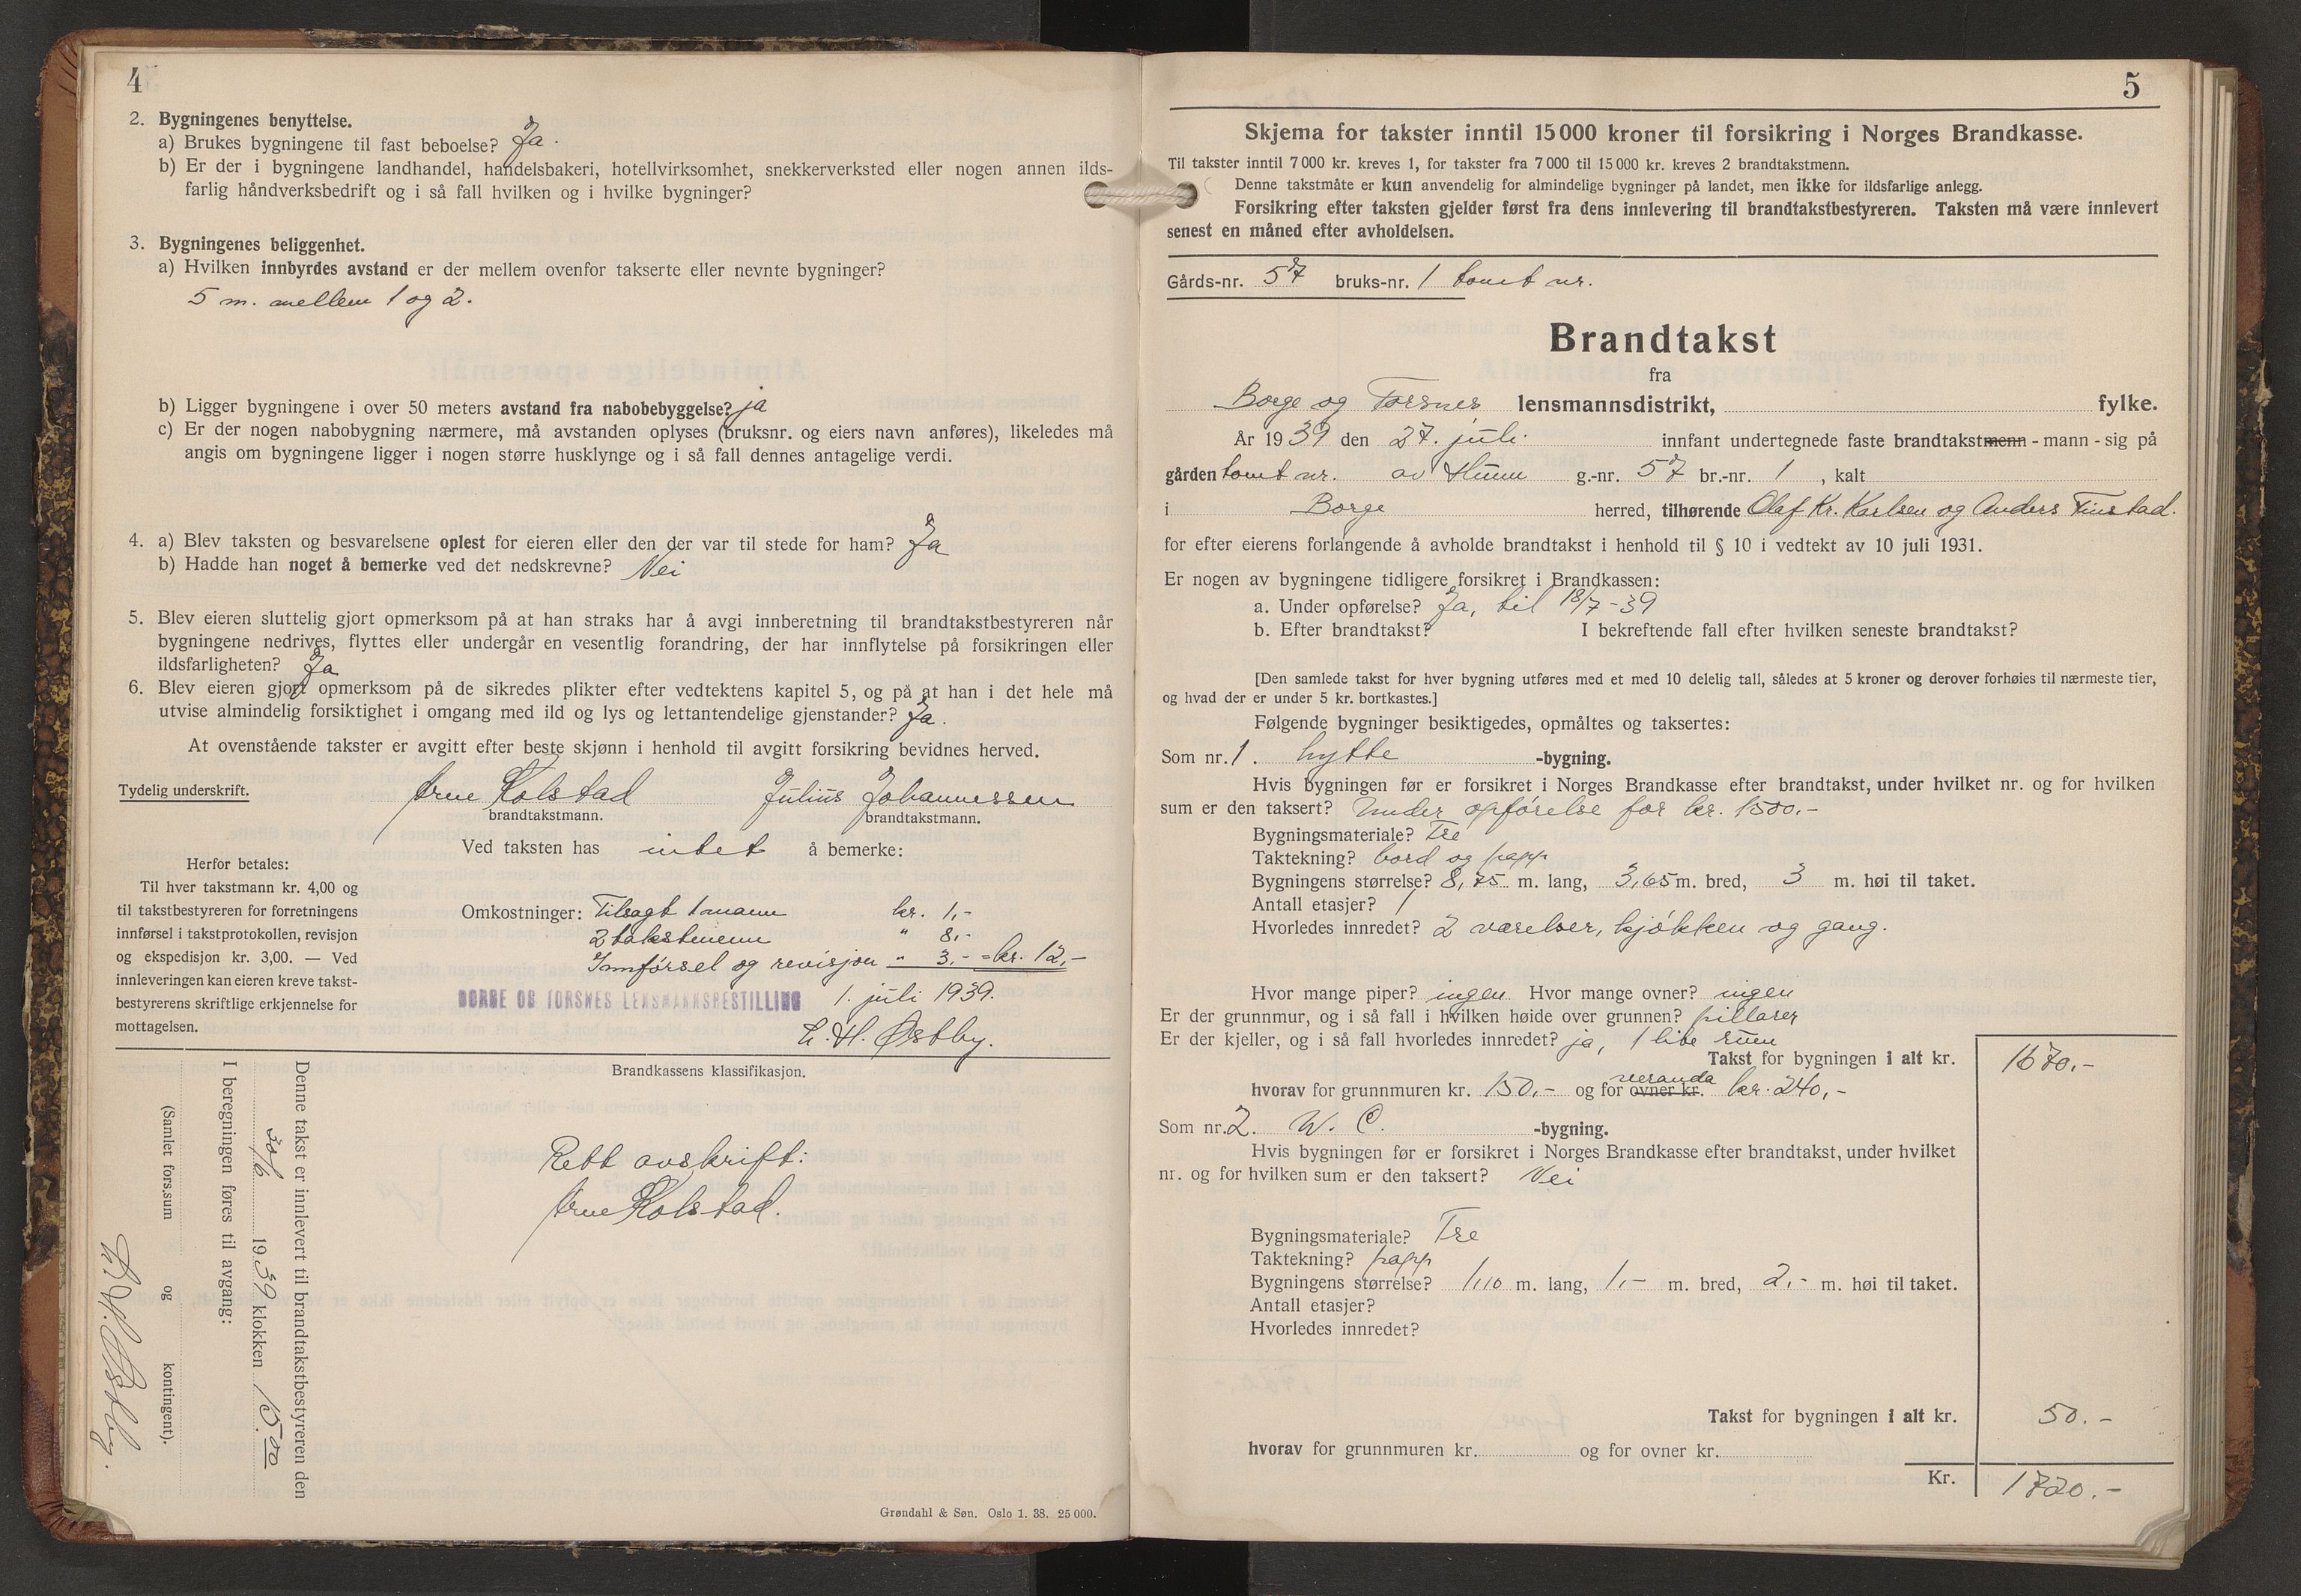 4
2. Bygningenes benyttelse.
a) Brukes bygningene til fast beboelse? Ja.
b) Er der i bygningene landhandel, handelsbakeri, hotellvirksomhet, snekkerverksted eller nogen annen ilds-
farlig håndverksbedrift og i så fall hvilken og i hvilke bygninger?
3. Bygningenes beliggenhet.
a) Hvilken innbyrdes avstand er der mellem ovenfor takserte eller nevnte bygninger?
5 m. mellem 1 og 2.
b) Ligger bygningene i over 50 meters avstand fra nabobebyggelse? ja
c) Er der nogen nabobygning nærmere, må avstanden oplyses (bruksnr. og eiers navn anføres), likeledes må
angis om bygningene ligger i nogen større husklynge og i så fall dennes antagelige verdi.
4. a) Blev taksten og besvarelsene oplest for eieren eller den der var til stede for ham? Ja
b) Hadde han noget å bemerke ved det nedskrevne? Nei
5. Blev eieren sluttelig gjort opmerksom på at han straks har å avgi innberetning til brandtakstbestyreren når
bygningene nedrives, flyttes eller undergår en vesentlig forandring, der har innflytelse på forsikringen eller
ildsfarligheten? Ja
6. Blev eieren gjort opmerksom på de sikredes plikter efter vedtektens kapitel 5, og på at han i det hele må
utvise almindelig forsiktighet i omgang med ild og lys og lettantendelige gjenstander? Ja.
At ovenstående takster er avgitt efter beste skjønn i henhold til avgitt forsikring bevidnes herved.
Tydelig underskrift. Arne Kolstad Julius Johannessen
brandtakstmann. brandtakstmann.
Ved taksten has intet å bemerke:
Herfor betales:
Til hver takstmann kr. 4,00 og
til takstbestyreren for forretningens
innførsel i takstprotokollen, revisjon
og ekspedisjon kr. 3,00. — Ved
innleveringen kan eieren kreve takst-
bestyrerens skriftlige erkjennelse for
mottagelsen.
Omkostninger: Tilsagt 1 mann kr. 1,-
2 takstmenn " 8,-
Innførsel og revisjon " 3,- = kr. 12,-
BORGE OG TORSNES LENSMANNSBESTILLING 1. juli 1939.
L. H. Østby.
Brandkassens klassifikasjon.
Rett avskrift:
Arne Kolstad.
Denne takst er innlevert til brandtakstbestyreren den
30/6 1939 klokken 15.00
I beregningen føres til avgang:
(Samlet fors.sum og kontingent).
L. H. Østby.
Grøndahl & Søn. Oslo 1. 38. 25 000.
5
Skjema for takster inntil 15 000 kroner til forsikring i Norges Brandkasse.
Til takster inntil 7 000 kr. kreves 1, for takster fra 7 000 til 15 000 kr. kreves 2 brandtakstmenn.
Denne takstmåte er kun anvendelig for almindelige bygninger på landet, men ikke for ildsfarlige anlegg.
Forsikring efter taksten gjelder først fra dens innlevering til brandtakstbestyreren. Taksten må være innlevert
senest en måned efter avholdelsen.
Gårds-nr. 57 bruks-nr. 1 tomt nr.
Brandtakst
fra
Borge og Torsnes lensmannsdistrikt, fylke.
År 1939 den 27. juli. innfant undertegnede faste brandtakstmenn - mann - sig på
gården tomt nr. av Hunn g.-nr. 57 br.-nr. 1, kalt
i Borge herred, tilhørende Olaf Kr. Karlsen og Anders Finstad.
for efter eierens forlangende å avholde brandtakst i henhold til § 10 i vedtekt av 10 juli 1931.
Er nogen av bygningene tidligere forsikret i Brandkassen:
a. Under opførelse? Ja, til 18/7-39
b. Efter brandtakst? I bekreftende fall efter hvilken seneste brandtakst?
[Den samlede takst for hver bygning utføres med et med 10 delelig tall, således at 5 kroner og derover forhøies til nærmeste tier,
og hvad der er under 5 kr. bortkastes.]
Følgende bygninger besiktigedes, opmåltes og taksertes:
Som nr. 1. hytte -bygning.
Hvis bygningen før er forsikret i Norges Brandkasse efter brandtakst, under hvilket nr. og for hvilken
sum er den taksert? Under opførelse for kr. 1500.-
Bygningsmateriale? Tre
Taktekning? bord og papp
Bygningens størrelse? 8,75 m. lang, 3,65 m. bred, 3 m. høi til taket.
Antall etasjer? 1
Hvorledes innredet? 2 værelser, kjøkken og gang.
Hvor mange piper? ingen Hvor mange ovner? ingen
Er der grunnmur, og i så fall i hvilken høide over grunnen? pillarer
Er der kjeller, og i så fall hvorledes innredet? ja, 1 lite rum
Takst for bygningen i alt kr. 1670.-
hvorav for grunnmuren kr. 150,- og for ovner kr. veranda kr. 240,-
Som nr. 2. W. C. -bygning.
Hvis bygningen før er forsikret i Norges Brandkasse efter brandtakst, under hvilket
nr. og for hvilken sum er den taksert? Nei
Bygningsmateriale? Tre
Taktekning? papp
Bygningens størrelse? 1,10 m. lang, 1,- m. bred, 2,- m. høi til taket.
Antall etasjer?
Hvorledes innredet?
Takst for bygningen i alt kr. 50.-
hvorav for grunnmuren kr. og for ovner kr.
Kr. 1720.-